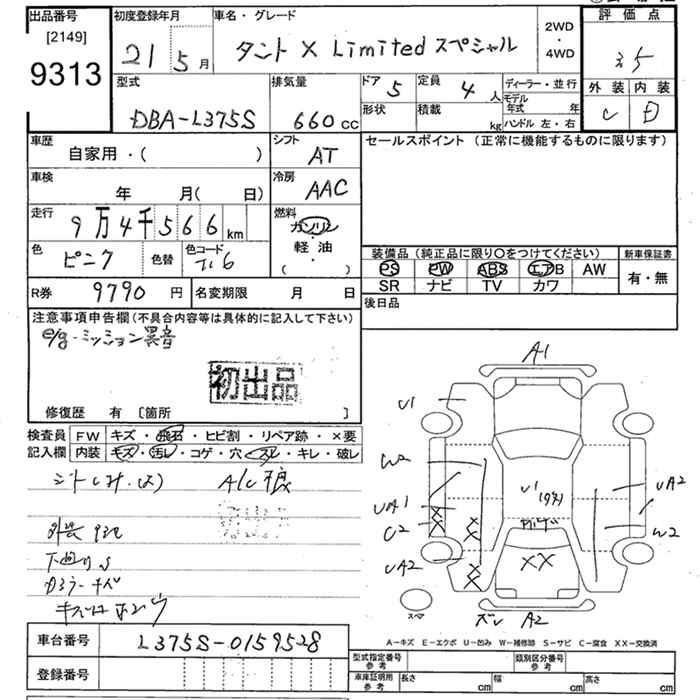 出品番号 初度登録年月 車名・グレード 2WD・4WD 評価点
[2149]
9313
21 5月 タント X Limited スペシャル 3.5
型式 排気量 ドア 5 定員 4人 ディーラー・並行 外装 内装
DBA-L375S 660cc 形状 積載 kg モデル年式 年 C D
ハンドル 左・右
車歴 シフト セールスポイント (正常に機能するものに限ります)
自家用・( ) AT
車検 冷房
年 月( 日) AAC
走行 燃料
9万4千566km ガソリン
色 色替 色コード 軽・油
ピンク ( )
装備品 (純正品に限り○をつけてください) 新車保証書
PS PW ABS エアB AW 有・無
SR ナビ TV カワ
R券 9790円 名変期限 月 日 後日品
注意事項申告欄(不具合内容等は具体的に記入して下さい)
e/g・ミッション異音
初出品
修復歴 有 [箇所 ]
検査員 FW キズ・飛石・ヒビ割・リペア跡・×要
記入欄 内装 キズ・汚レ・コゲ・穴・スレ・キレ・破レ
A1
U1
W2
UA1
C2
UA2
U1
UA2
W2
XX
A2
下回りS
A-キズ E-エクボ U-凹み W-補修跡 S-サビ C-腐食 XX-交換済
車台番号 L375S-0159528
登録番号
型式指定番号 参考 類別区分番号 参考
車庫証明用 参考 長さ cm 幅 cm 高さ cm